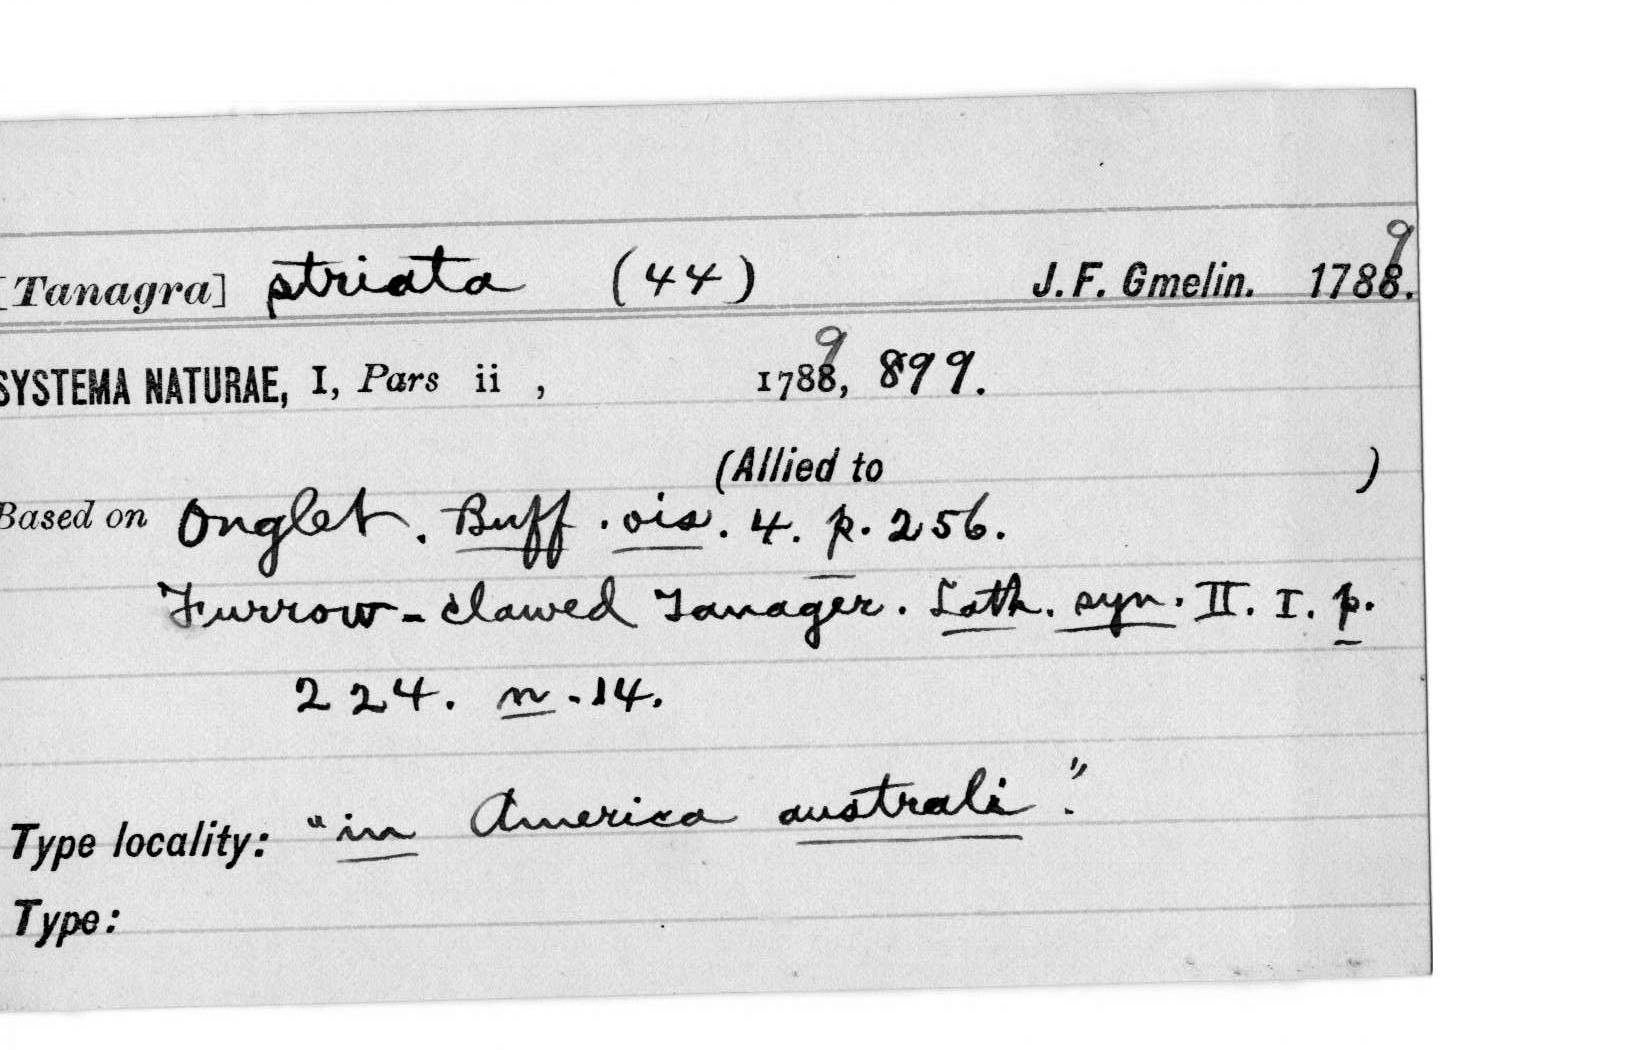 [Tanagra] striata (44) J. F. Gmelin. 1788. 9
SYSTEMA NATURAE, I, Pars ii , 1788, 9 899.
(Allied to )
Based on Onglet. Buff. ois. 4. p. 256.
Furrow-clawed Tanager. Lath. syn. II. I. p.
224. n. 14.
Type locality: "in America australi".
Type: